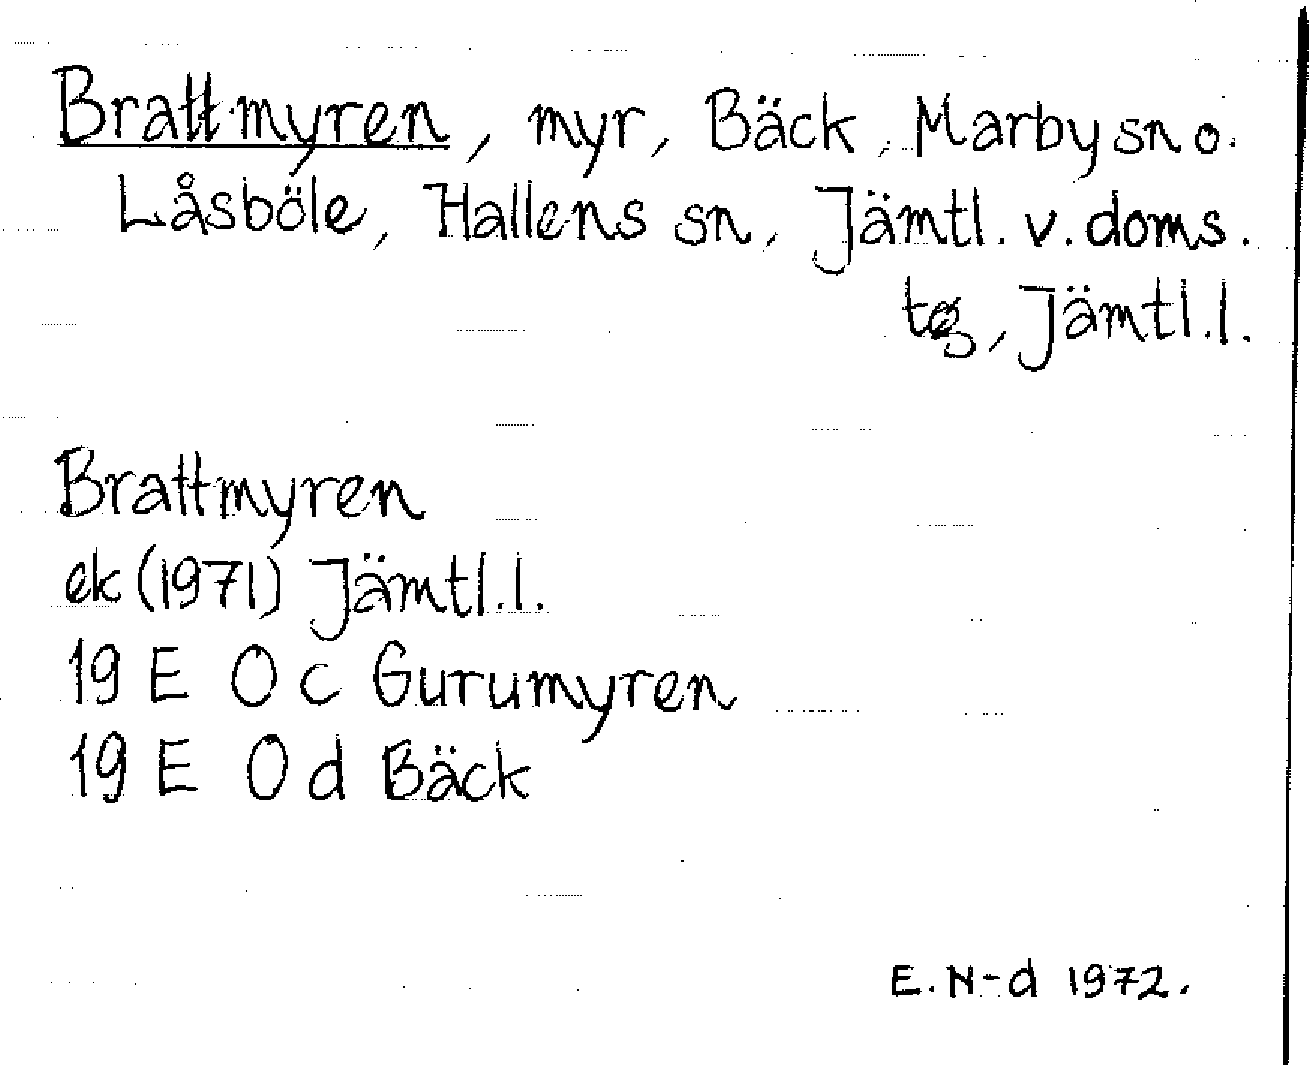 Brattmyren, myr, Bäck, Marby sn o.
Låsböle, Hallens sn, Jämtl. v. doms.
tg, Jämtl.l.
Brattmyren
ek (1971) Jämtl.l.
19 E 0 c Gurumyren
19 E 0 d Bäck
E. N-d 1972.